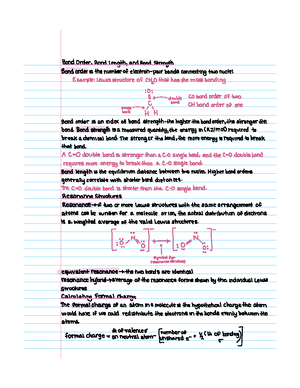 Bond Order, Bond Length, and Bond Strength
Bond order is the number of electron-pair bonds connecting two nuclei
Example: Lewis structure of CH2O that has the most bonding
double bond
single bond
CO bond order of two
CH bond order of one
Bond order is an index of bond strength-the higher the bond order, the stronger the
bond. Bond strength is a measured quantity, the energy in (KJ/mol) required to
break a chemical bond. The stronger the bond, the more energy is required to break
that bond.
A C=O double bond is stronger than a C-O single bond, and the C=O double bond
requires more energy to break than a C-O single bond
Bond length is the equilibrium distance between two nuclei. Higher bond orders
generally correlate with shorter bond distances.
The C=O double bond is shorter than the C-O single bond.
Resonance Structures
Resonance→if two or more Lewis structures with the same arrangement of
atoms can be written for a molecule or ion, the actual distribution of electrons
is a weighted average of the valid Lewis structures.
Symbol for resonance structures
equivalent resonance→the two bonds are identical
resonance hybrid→average of the resonance forms shown by the individual Lewis
structures
Calculating Formal Charge
The formal charge of an atom in a molecule is the hypothetical charge the atom
would have if we could redistribute the electrons in the bonds evenly between the
atoms.
formal charge = # of valence e⁻ on neutral atom - [number of unshared e⁻ + 1/2 (# of bonding e⁻)]